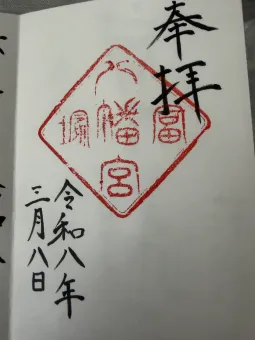 奉拝
富
八幡宮
令和八年
三月八日